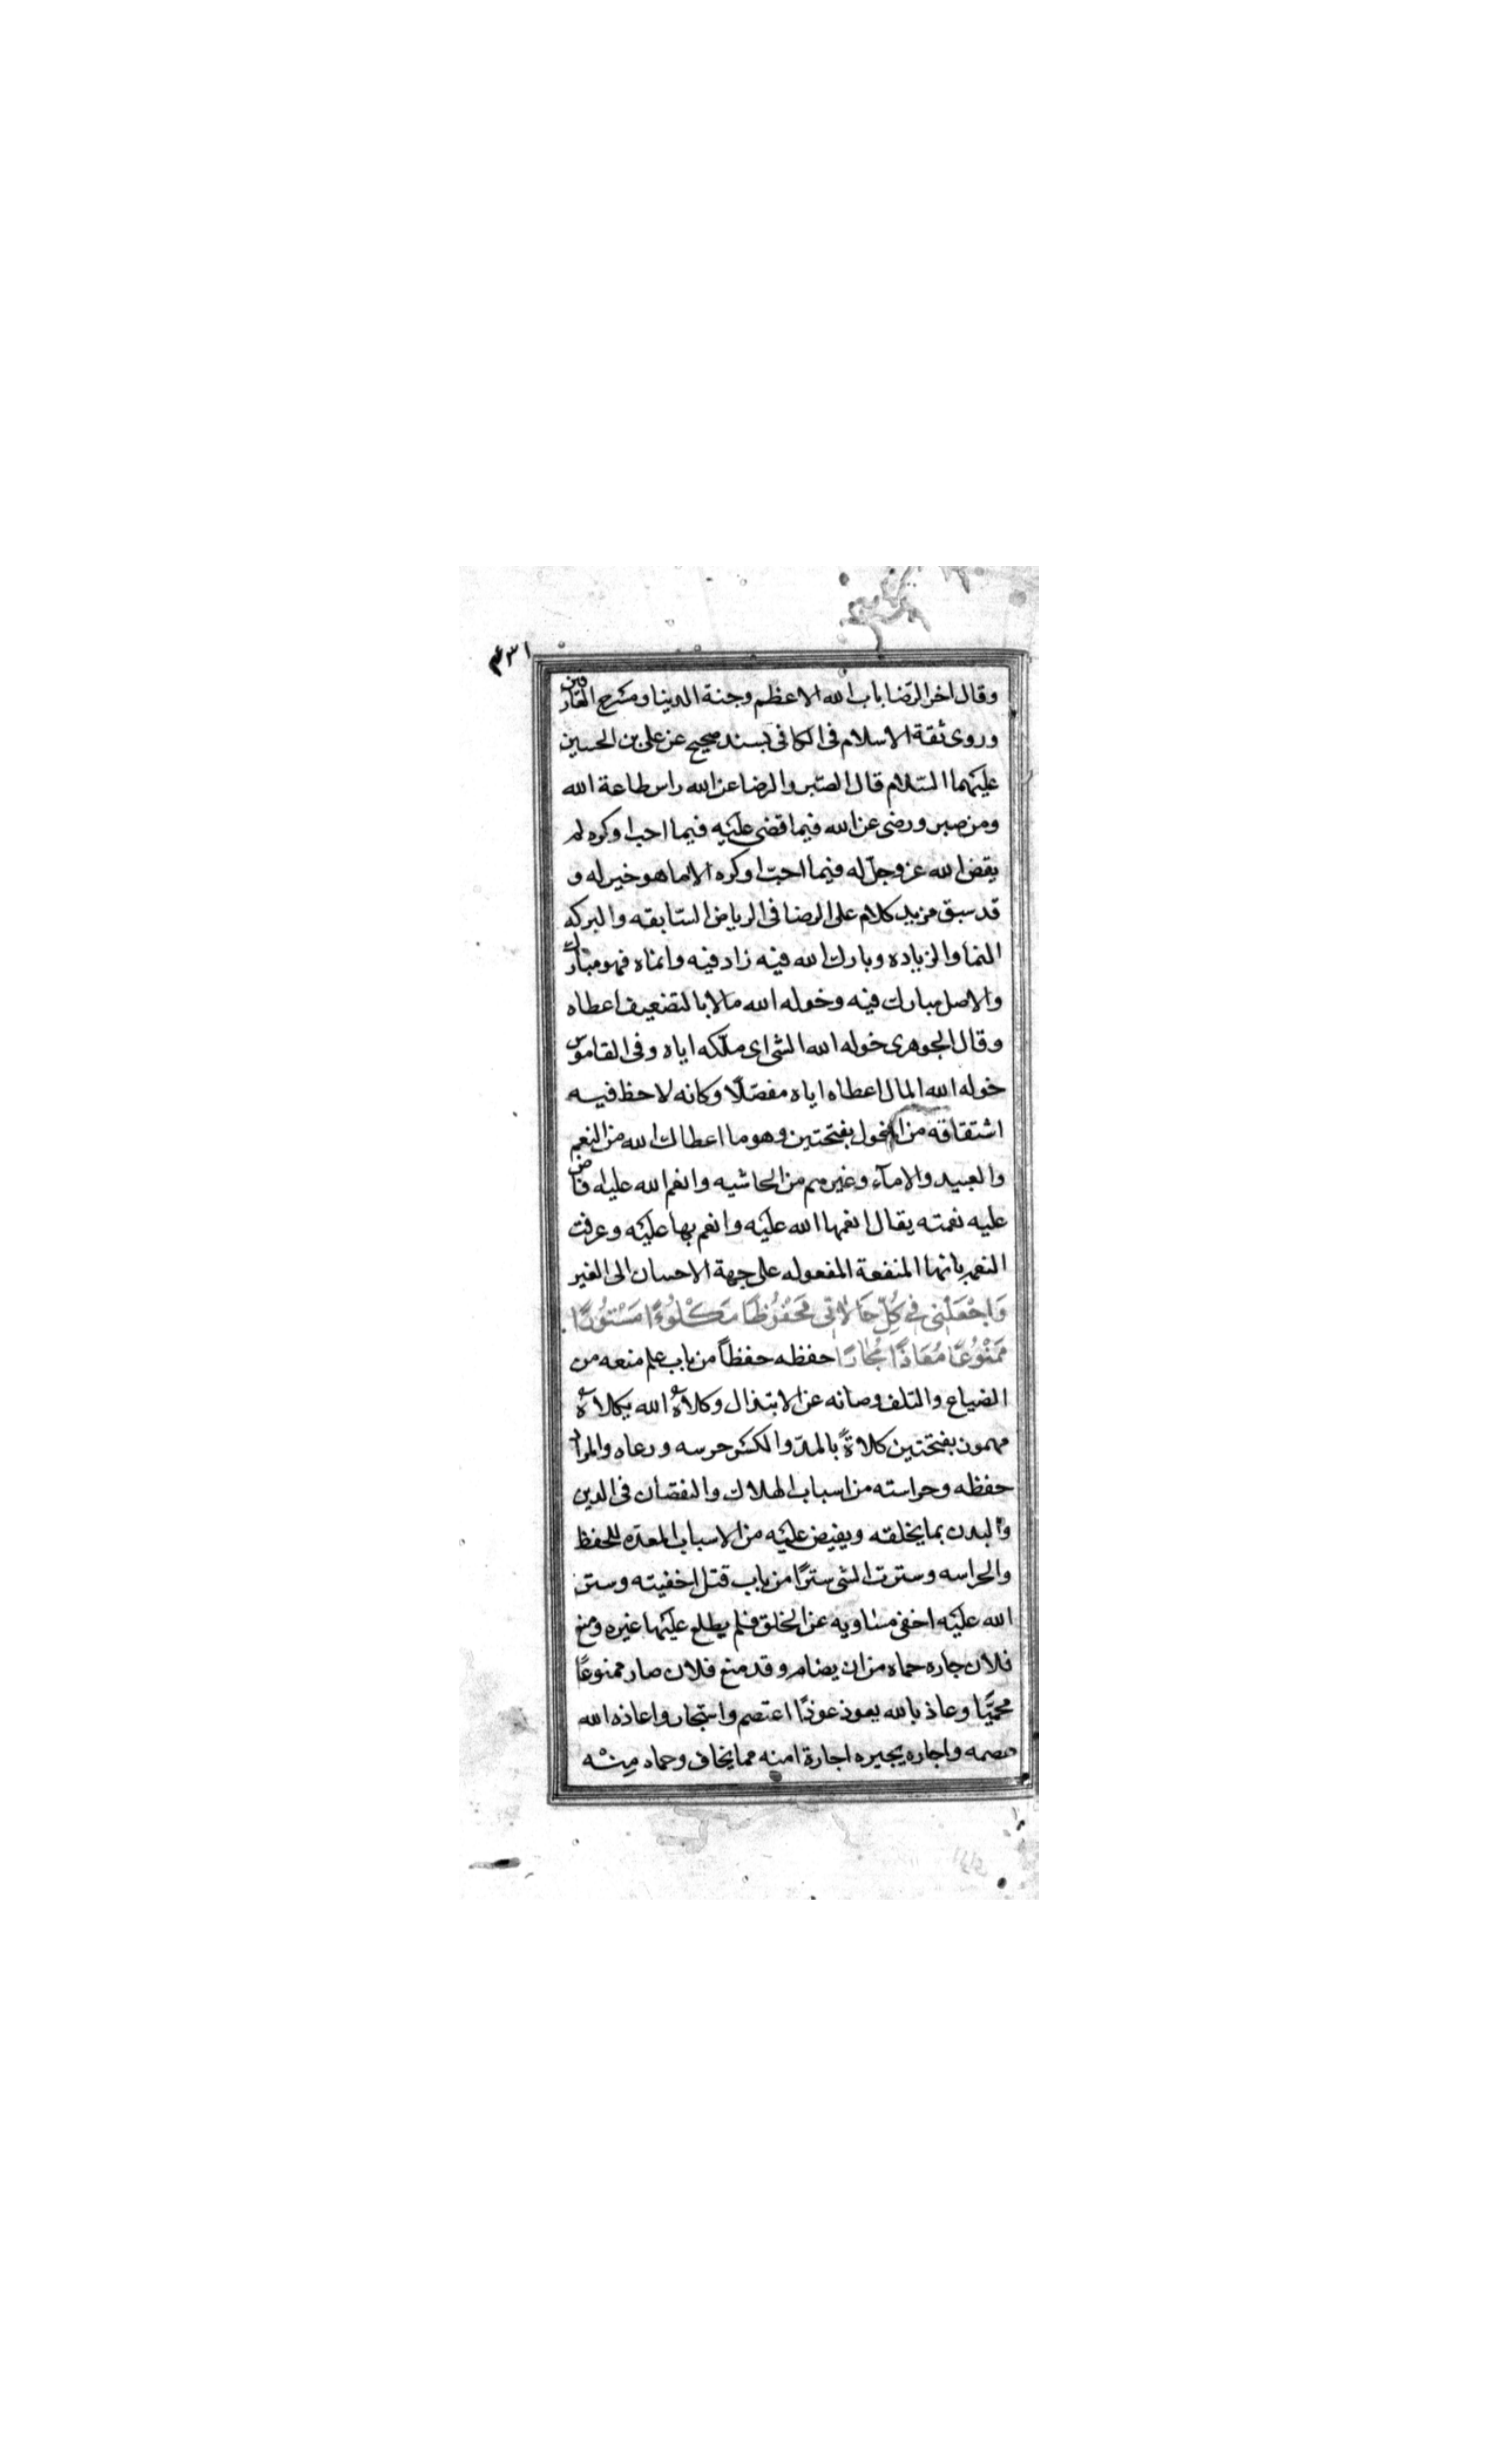 ٤٣١
وقال اخر الرضا باب الله الاعظم وجنة الدنيا ومسرح العارفين
وروى ثقة الاسلام فى الكافى بسند صحيح عن على بن الحسين
عليهما السلام قال الصبر والرضا عن الله راس طاعة الله
ومن صبر ورضى عن الله فيما قضى عليه فيما احب او كره لم
يقض الله عز وجل له فيما احب او كره الا ما هو خير له و
قد سبق مزيد كلام على الرضا فى الرياض السابقه والبركه
النما والزياده وبارك الله فيه زاد فيه وانماه فهو مبارك
والاصل مبارك فيه وخوله الله مالا بالتضعيف اعطاه
وقال الجوهرى خوله الله الشى اى ملكه اياه وفى القاموس
خوله الله المال اعطاه اياه مفضلًا وكانه لاحظ فيه
اشتقاقه من الخول بفتحتين وهو ما اعطاك الله من النعم
والعبيد والامآء وغيرهم من الحاشيه وانعم الله عليه فاض
عليه نعمته يقال انعمها الله عليه وانعم بها عليه وعرفت
النعمه بانها المنفعة المفعوله على جهة الاحسان الى الغير
وَاجْعَلْنى فى كُلِّ حَالاتى مَحْفُوظًا مَكْلُوءًا مَسْتُورًا
مَمْنُوعًا مُعَاذًا مُجَارًا حفظه حفظاً من باب علم منعه من
الضياع والتلف وصانه عن الابتذال وكلأه الله يكلأه
مهموز بفتحتين كلاءةً بالمد والكسر حرسه ورعاه والمراد
حفظه وحراسته من اسباب الهلاك والنقصان فى الدين
والبدن بما يخلقه ويفيض عليه من الاسباب المعدّه للحفظ
والحراسه وسترت الشى سترًا من باب قتل اخفيته وستر
الله عليه اخفى مساويه عن الخلق فلم يطلع عليها غيره ومنع
فلان جاره حماه من ان يضام وقد منع فلان صار ممنوعًا
محميًا وعاذ بالله يعوذ عوذًا اعتصم واستجار واعاذه الله
عصمه واجاره يجيره اجارة امنه مما يخاف وحماه مِنْه